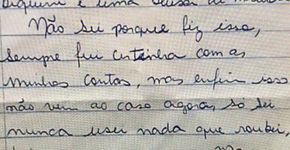 alguém é uma
Não sei porque fiz isso,
sempre fui certinha com as
minhas contas, mas enfim isso
não vem ao caso agora, só sei
nunca usei nada que roubei,